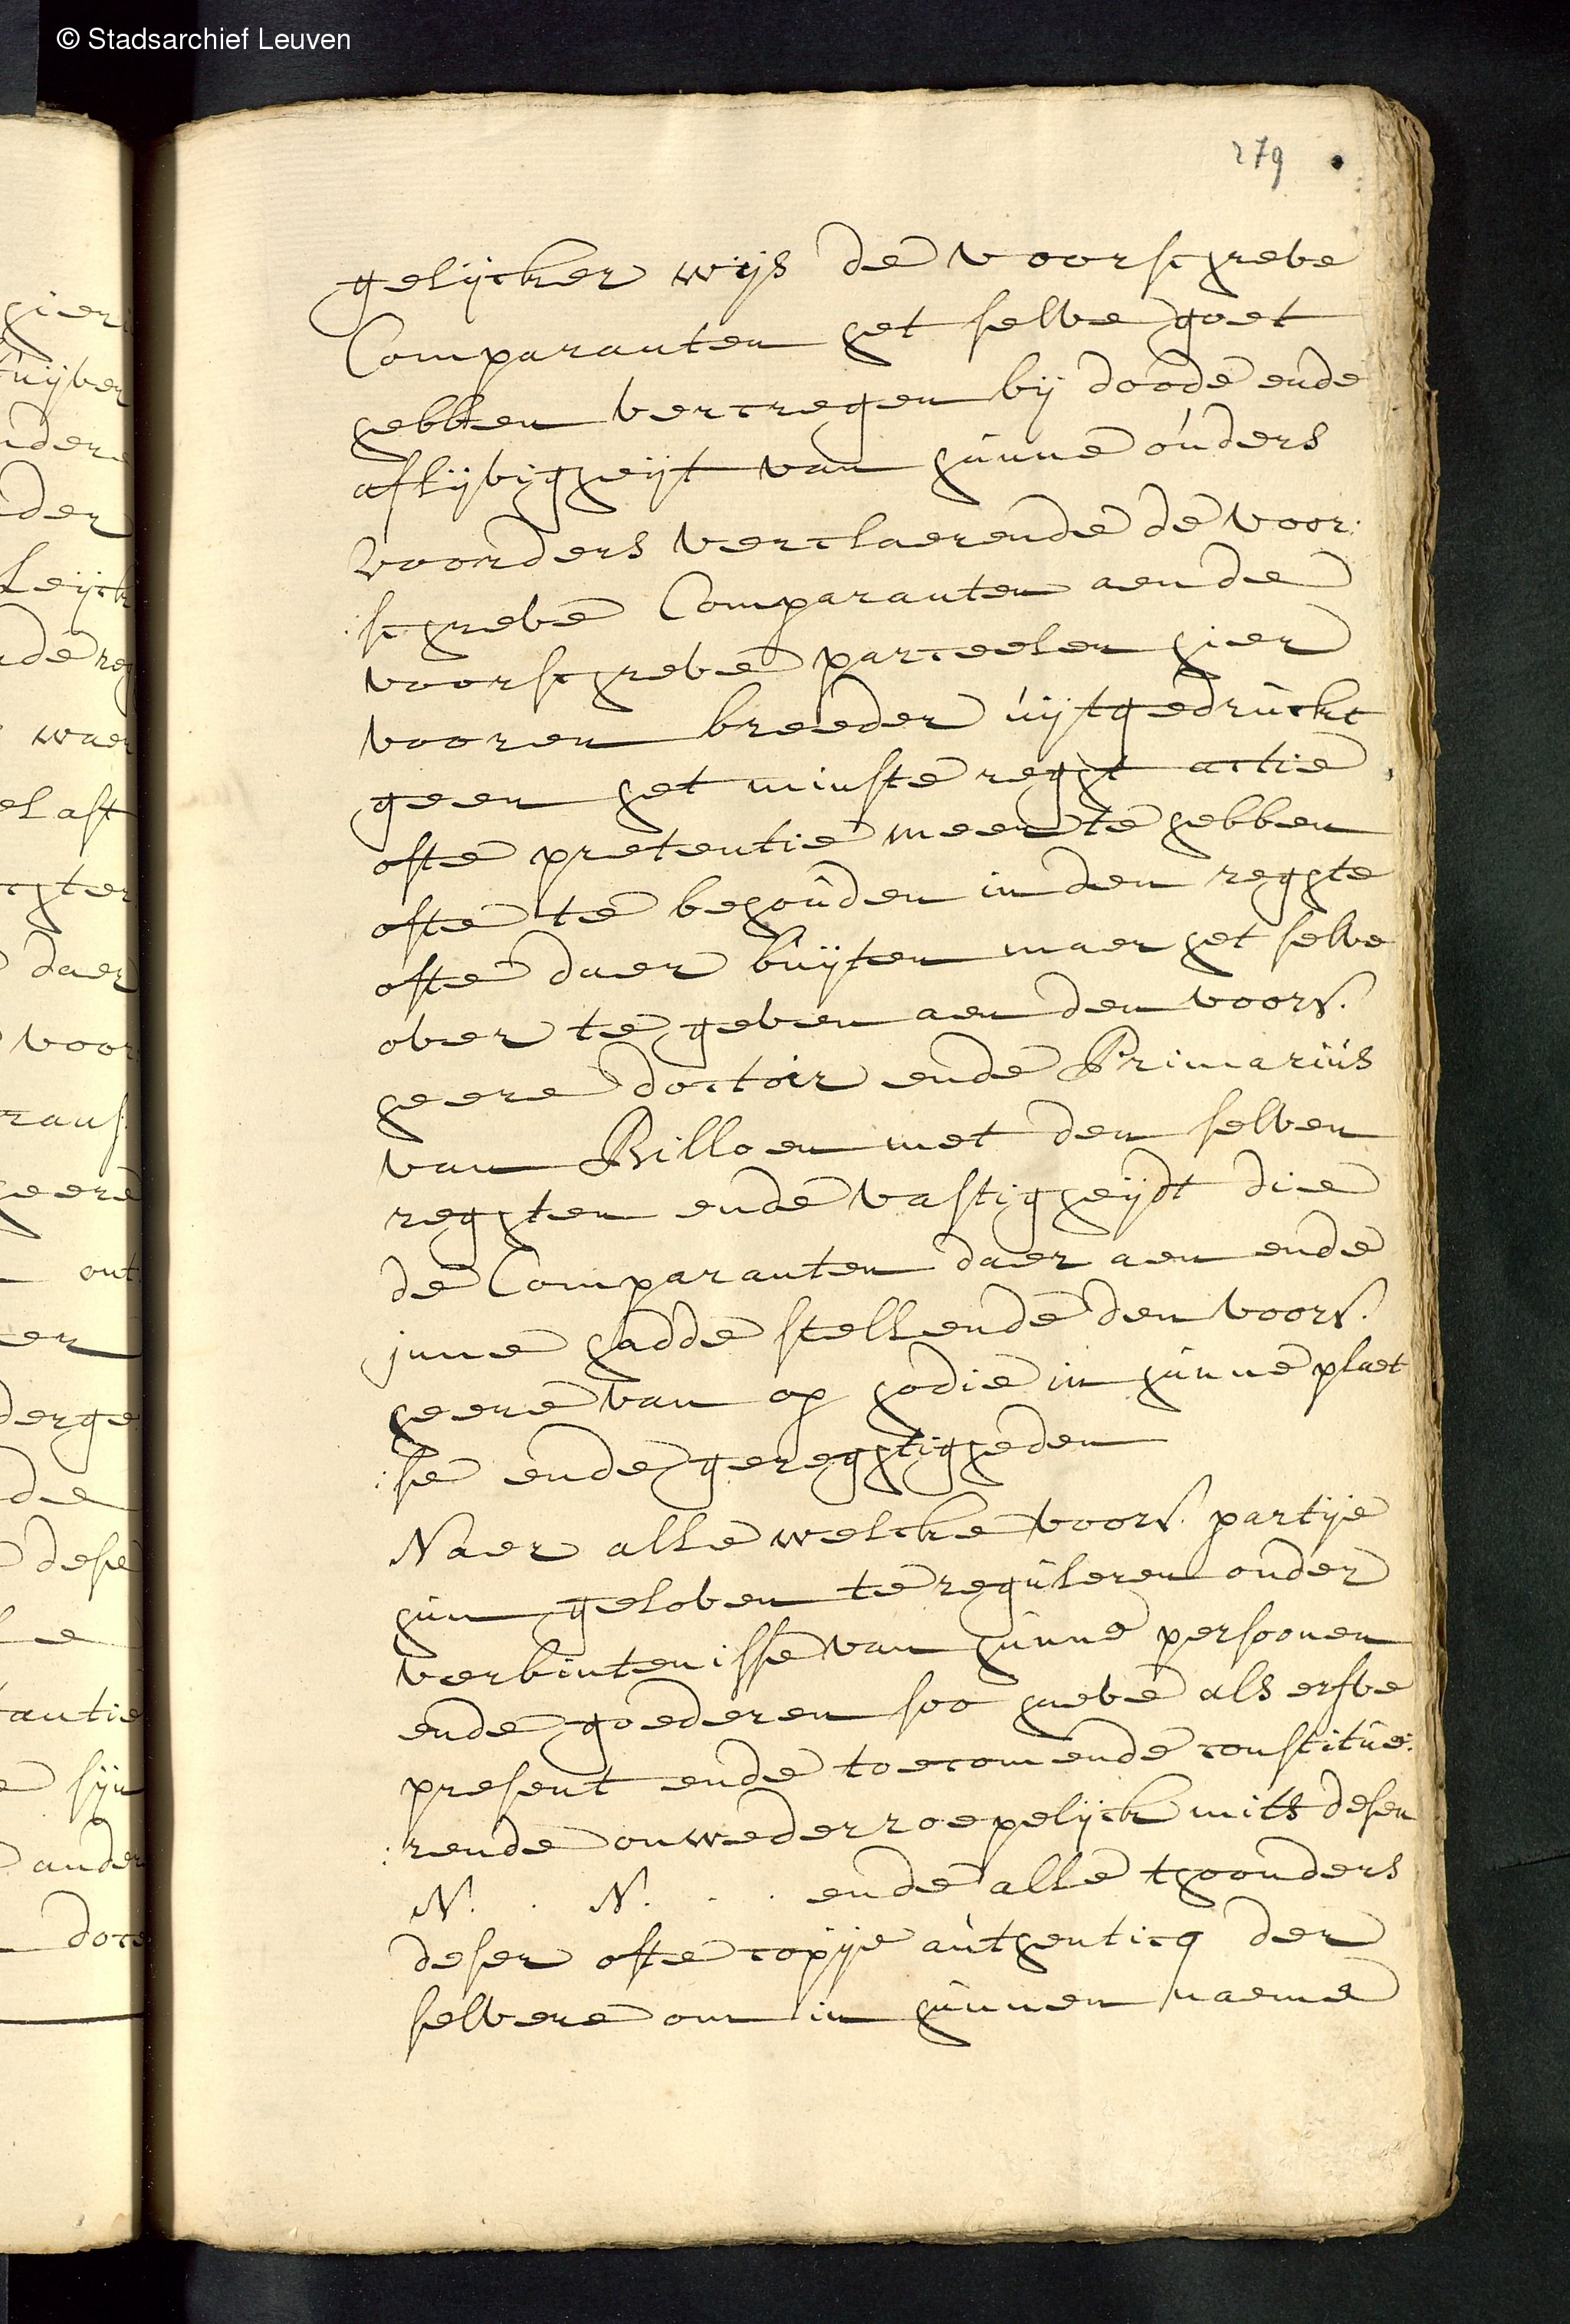 © Stadsarchief Leuven
279
gelijcker wijs de voorschreve
Comparanten het selve goet
hebben vercregen bij doode ende
aflijvigheijt van hunne ouders
voorders verclaerende de voor:
:schreve Comparanten aen de
voorschreve parceelen hier
vooren breeder uijtgedruckt
geen het minste reght actie
ofte pretentie meer te hebben
ofte te behouden in den reghte
ofte daer buijten maer het selve
over te geven aen den voors.
heere doctoir ende Primarius
van Billoen met den selven
reghten ende vastigheijdt die
de Comparanten daer aen ende
inne hadde stellende den voors.
heere van op hodie in hunne plaet
:se ende gereghtigheden
Naer alle welcke voors. partije
hun geloven te reguleren onder
verbintenisse van hunne persoonen
ende goederen soo have als erfve
present ende toecomende constitue:
:rende onwederroepelijck mits desen
N. . N. . . ende alle thoonders
deser ofte copije authenticq der
selvere om in hunnen naeme
hier
tuijven
der
leijck
waer
elast
ghter
daer
voor
heere
ont
er
derge
de
dese
le
tantie
sijn
ander